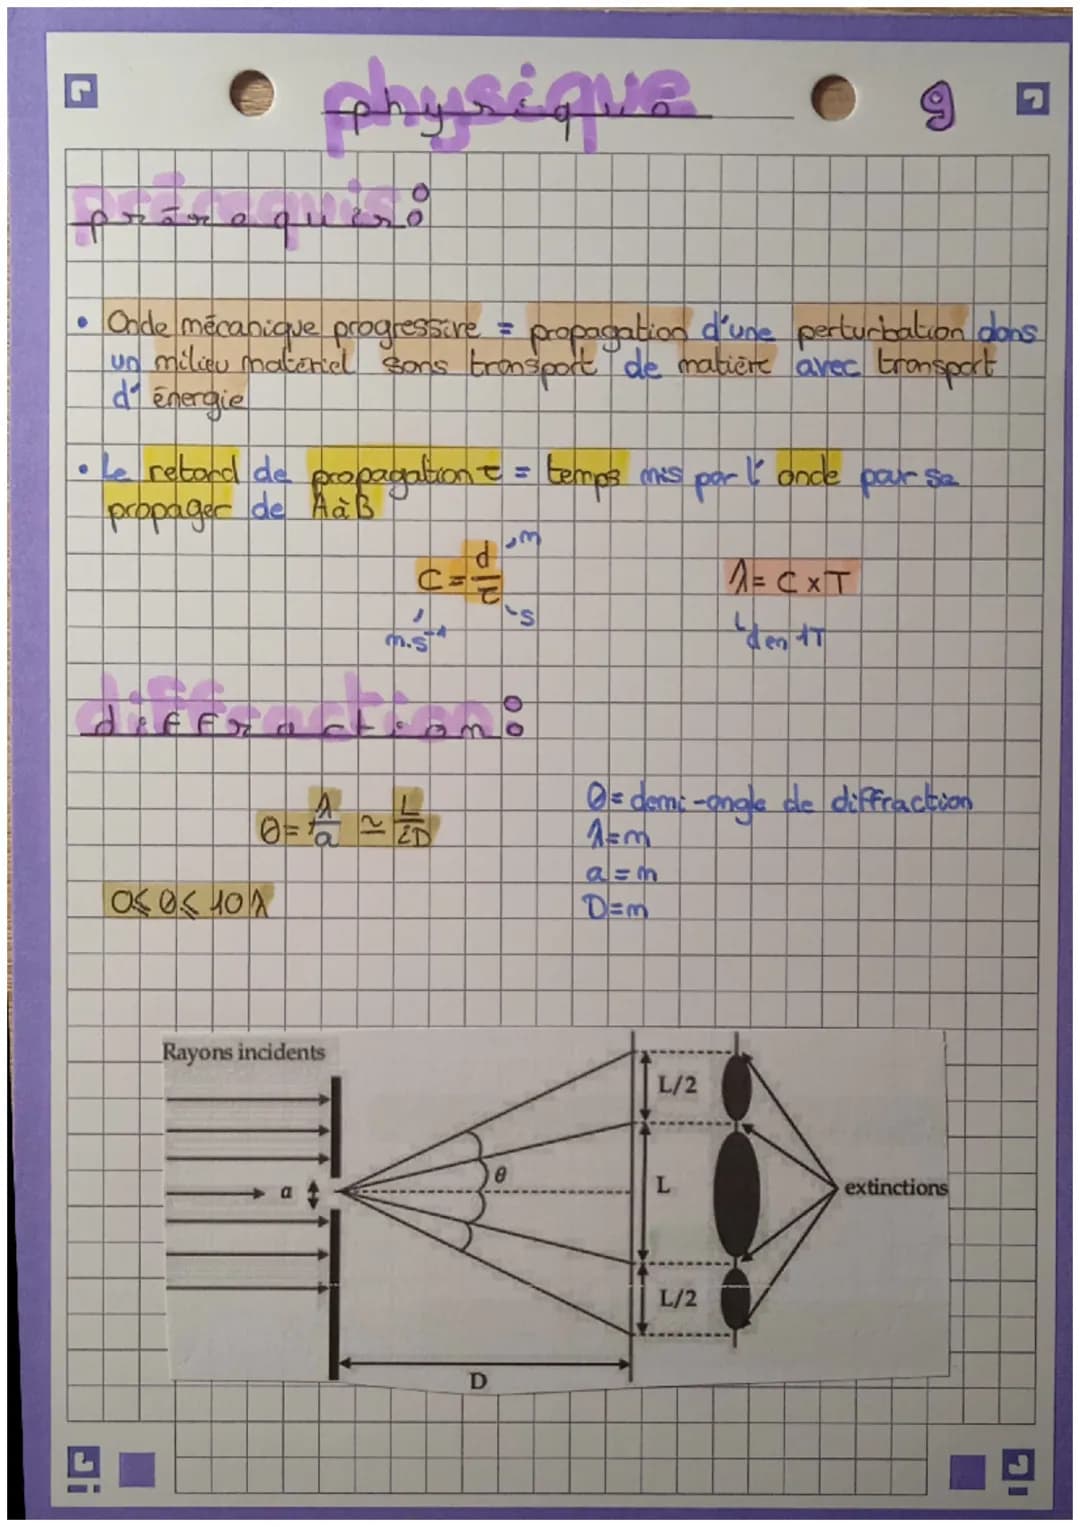 physique
9
prérequis :
• Onde mécanique progressive = propagation d'une perturbation dans
un milieu matériel sans transport de matière avec transport
d' énergie
• Le retard de propagation τ = temps mis par l' onde par se
propager de A à B
C = d/τ
m
s
m.s⁻¹
λ = C x T
d en 1T
diffraction :
θ = λ/a ≃ L/2D
θ = demi-angle de diffraction
λ = m
a = m
D = m
0 ≤ θ ≤ 10 λ
Rayons incidents
L/2
a
θ
L
extinctions
L/2
D